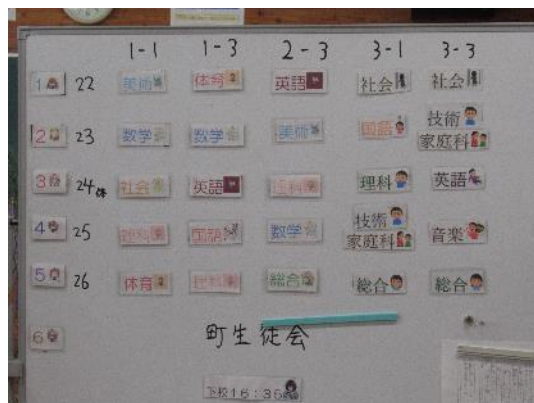 1-1 1-3 2-3 3-1 3-3
1 22 美術 体育 英語 社会 社会
2 23 数学 数学 美術 国語 技術 家庭科
3 24 社会 英語 理科 理科 英語
4 25 理科 国語 数学 技術 家庭科 音楽
5 26 体育 理科 総合 総合 総合
6 町生徒会
下校16:35